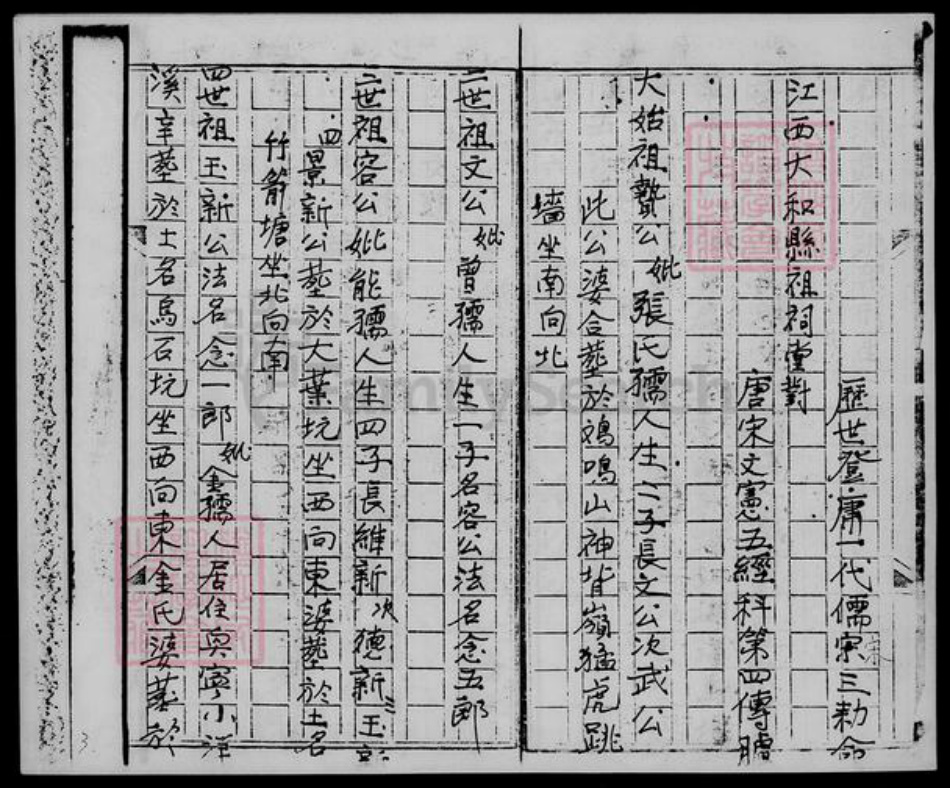 歷世登庸一代儒宗三勅命
江西大和縣祖祠堂對
唐宋文憲五經科第四傳臚
大始祖贄公妣張氏孺人生二子長文公次武公
此公婆合塟於鴉鳴山神背嶺猛虎跳
墻坐南向北
二世祖文公妣曾孺人生一子名容公法名念五郎
三世祖容公妣能孺人生四子長維新次德新三玉新
四景新公塟於大葉坑坐西向東婆塟於土名
竹𥯤塘坐北向南
四世祖玉新公法名念一郎妣金孺人居住興寧小洋
溪辛塟於土名烏石坑坐西向東金氏婆墓於
FamilySearch
3